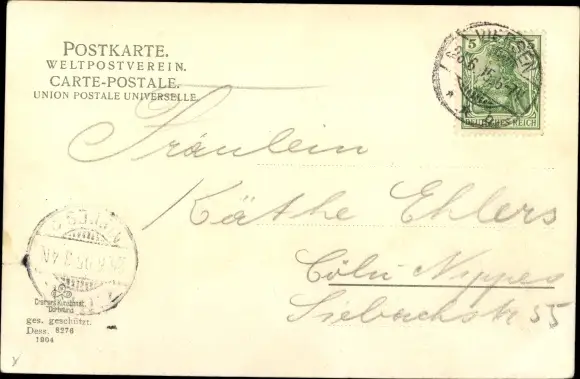 POSTKARTE.
WELTPOSTVEREIN.
CARTE-POSTALE.
UNION POSTALE UNIVERSELLE
5
VIERSEN
DEUTSCHES REICH
Fräulein
Käthe Ehlers
Cöln Nippes
Siebachstr. 55
Cramers Kunstanst.
Dortmund
ges. geschützt.
Dess. 8276
1904